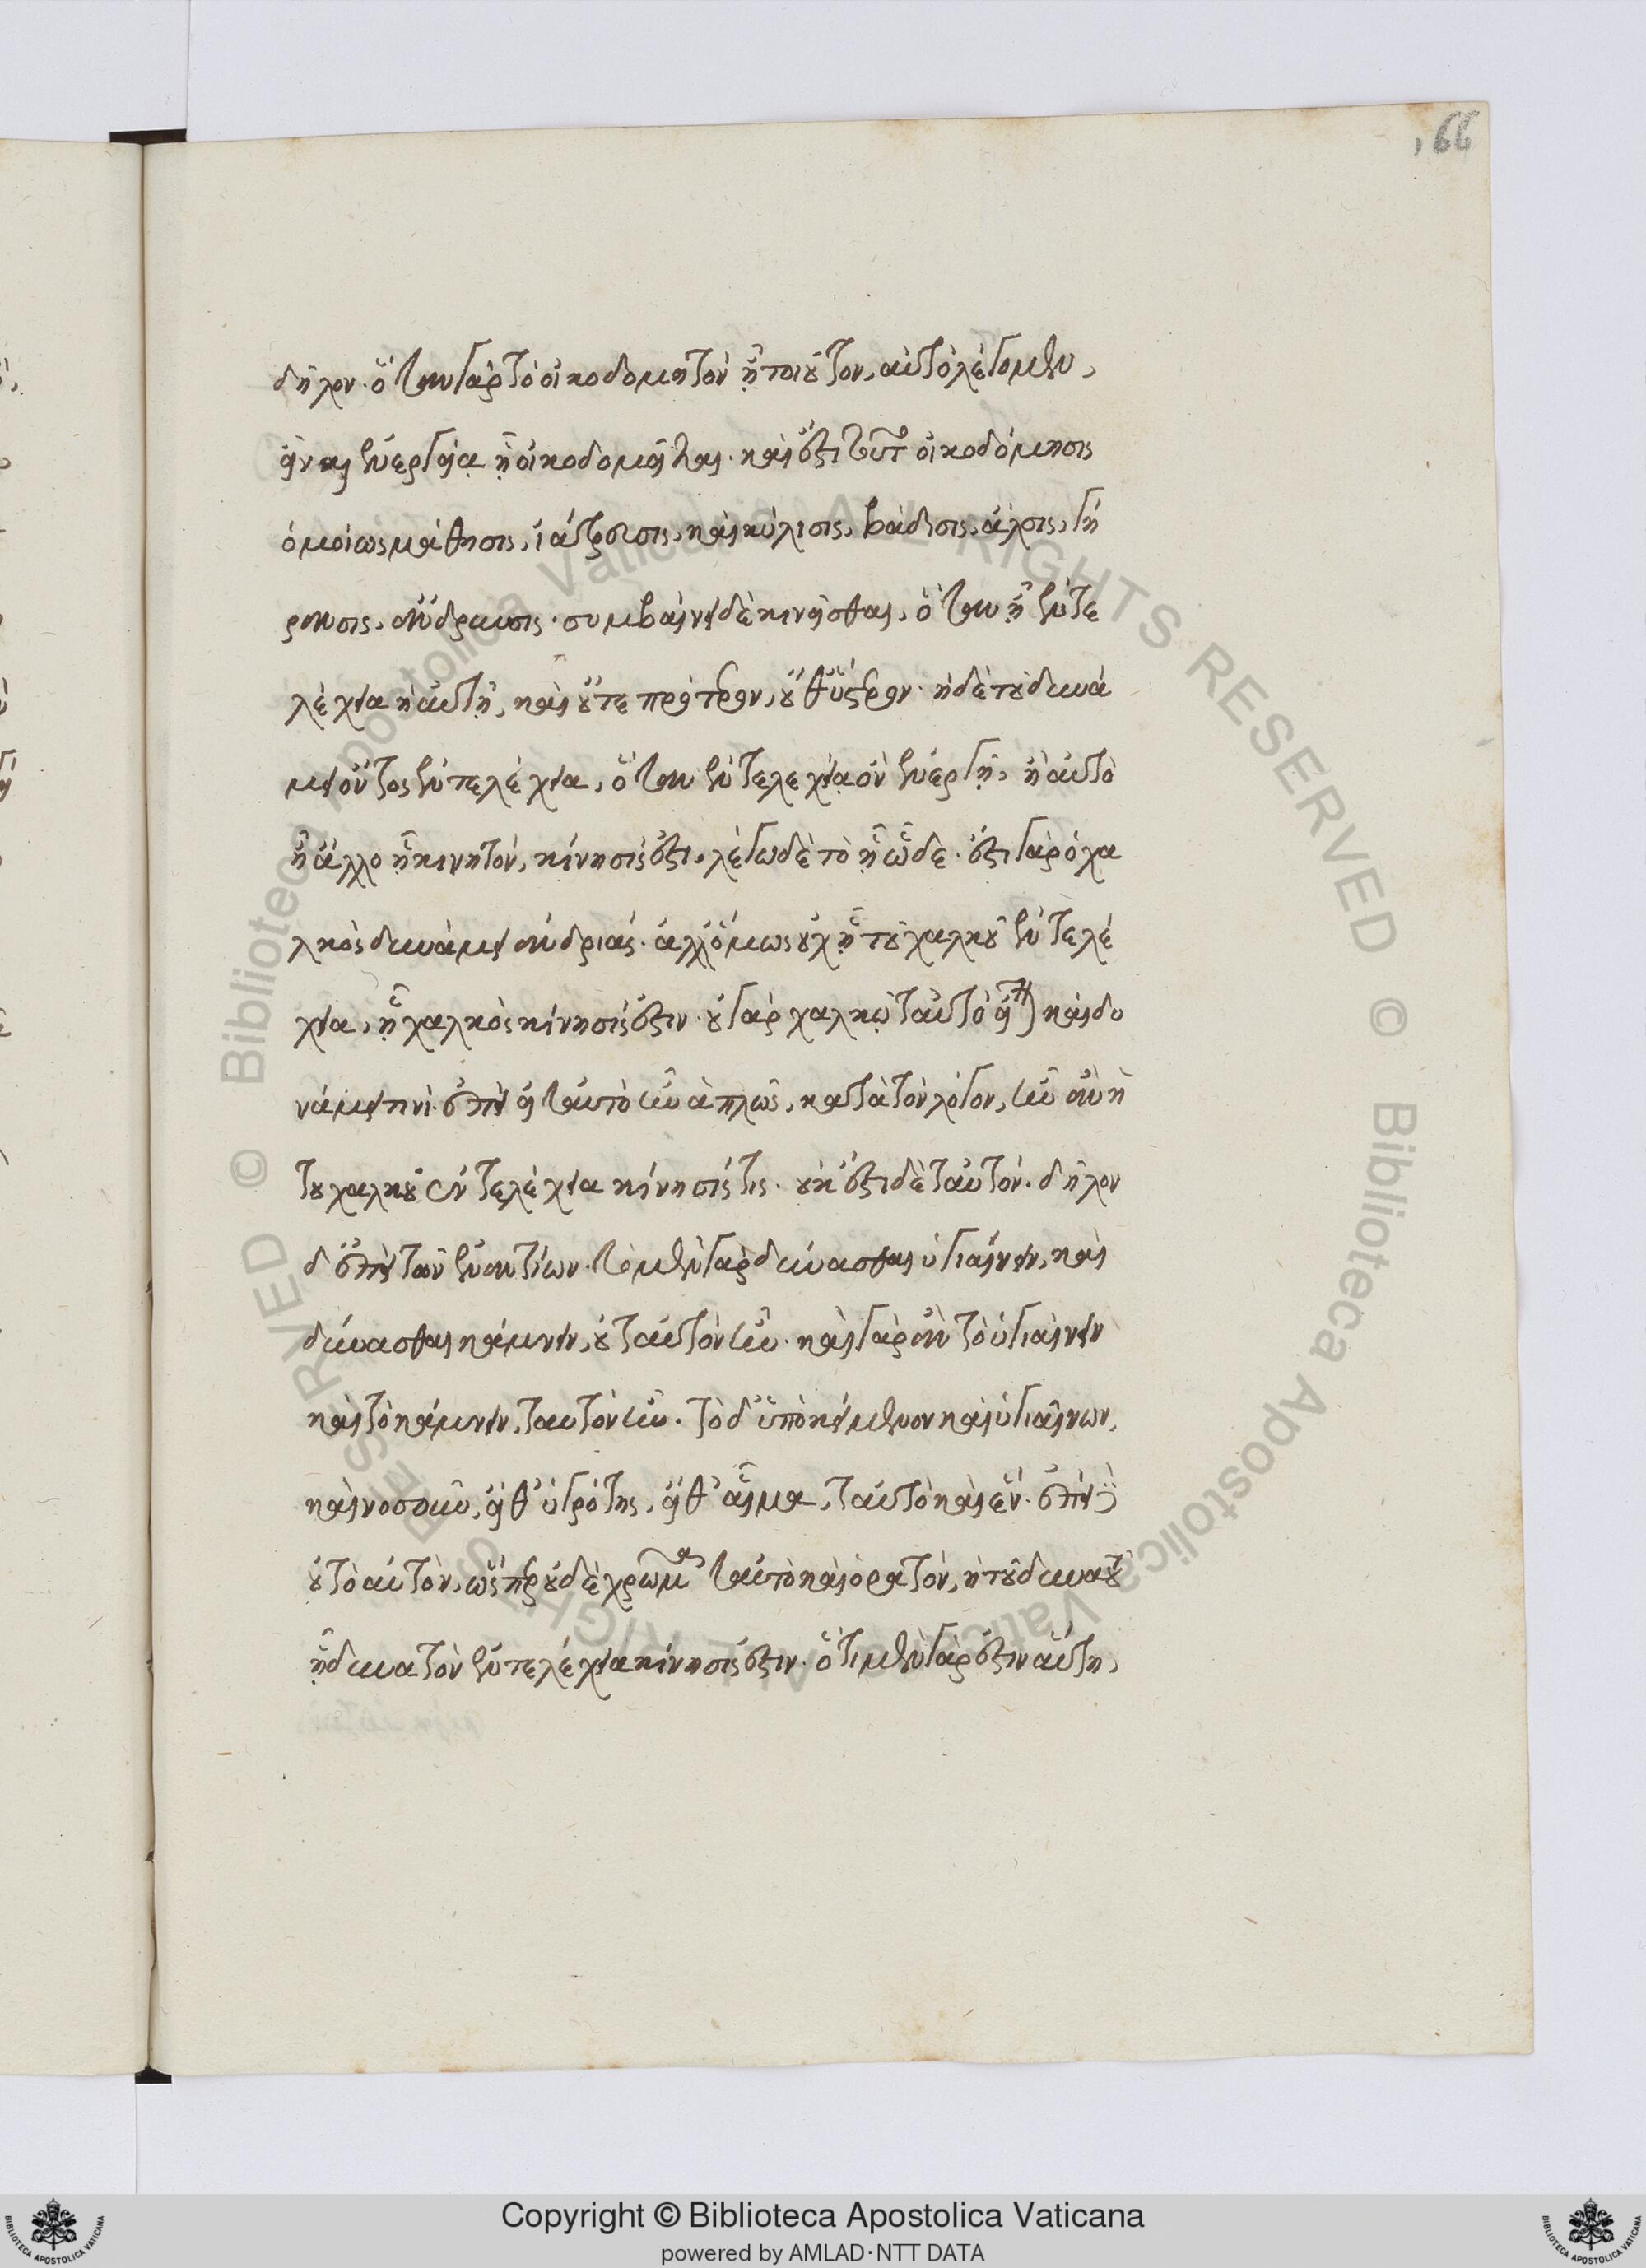 166
δῆλον· ὅταν γὰρ τὸ οἰκοδομητὸν ᾗ τοιοῦτον, αὐτὸ λέγομεν,
εἶναι ἐνεργείᾳ ᾖ οἰκοδομεῖται· καὶ ἔστι τοῦτο οἰκοδόμησις
ὁμοίως μάθησις, ἰάτρευσις, καὶ κύλισις, βάδισις, ἅλσις, γή
ρανσις, ἅδρυνσις· συμβαίνει δὲ κινεῖσθαι, ὅταν ᾖ ἐντε
λέχεια ἡ αὐτὴ, καὶ οὔτε πρότερον, οὔθ' ὕστερον· ἡ δὲ τοῦ δυνά
μει ὄντος ἐντελέχεια, ὅταν ἐντελεχείᾳ ὂν ἐνεργῇ, ἢ αὐτὸ
ἢ ἄλλο ᾗ κινητόν, κίνησίς ἐστι. λέγω δὲ τὸ ᾗ ὧδε· ἔστι γὰρ ὁ χα
λκὸς δυνάμει ἀνδριάς· ἀλλ' ὅμως οὐχ ἡ τοῦ χαλκοῦ ἐντελέ
χεια, ᾗ χαλκὸς κίνησίς ἐστιν· οὐ γὰρ χαλκῷ ταὐτὸ εἶναι καὶ δυ
νάμει τινί· ἐπεὶ εἰ ταὐτὸ ἦν ἁπλῶς, κατὰ τὸν λόγον, ἦν ἂν ἡ
τοῦ χαλκοῦ ἐντελέχεια κίνησίς τις· οὐκ ἔστι δὲ ταὐτόν. δῆλον
δ' ἐπὶ τῶν ἐναντίων· τὸ μὲν γὰρ δύνασθαι ὑγιαίνειν, καὶ
δύνασθαι κάμνειν, οὐ ταὐτὸν ἦν· καὶ γὰρ ἂν τὸ ὑγιαίνειν
καὶ τὸ κάμνειν, ταυτὸν ἦν. τὸ δ' ὑποκείμενον καὶ ὑγιαῖνον,
καὶ νοσοῦν, εἴθ' ὑγρότης, εἴθ' αἷμα, ταὐτὸ καὶ ἕν· ἐπεὶ δ'
οὐ τὸ αὐτὸν, ὥσπερ οὐδὲ χρῶμα ταὐτὸ καὶ ὁρατόν, ἡ τοῦ δυνατοῦ
ᾗ δυνατὸν ἐντελέχεια κίνησίς ἐστιν. ὅτι μὲν γὰρ ἔστιν αὕτη,
Copyright © Biblioteca Apostolica Vaticana
powered by AMLAD·NTT DATA